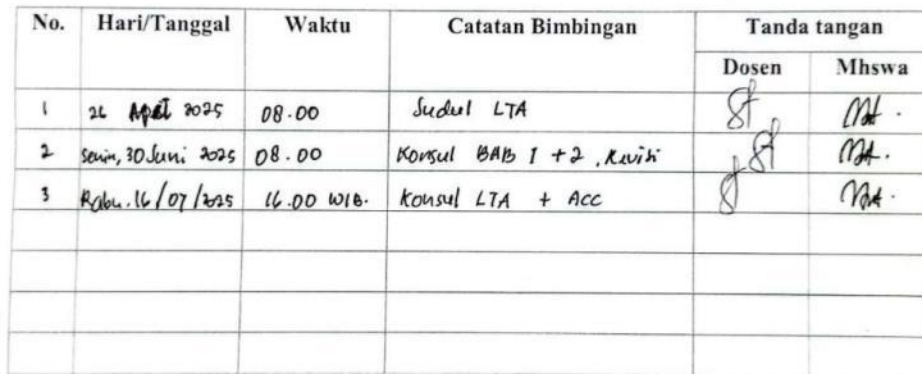 No. Hari/Tanggal Waktu Catatan Bimbingan Tanda tangan
Dosen Mhswa
1 26 April 2025 08.00 Judul LTA
2 Senin, 30 Juni 2025 08.00 Konsul BAB 1 + 2, Revisi
3 Rabu. 16/07/2025 16.00 WIB. Konsul LTA + ACC